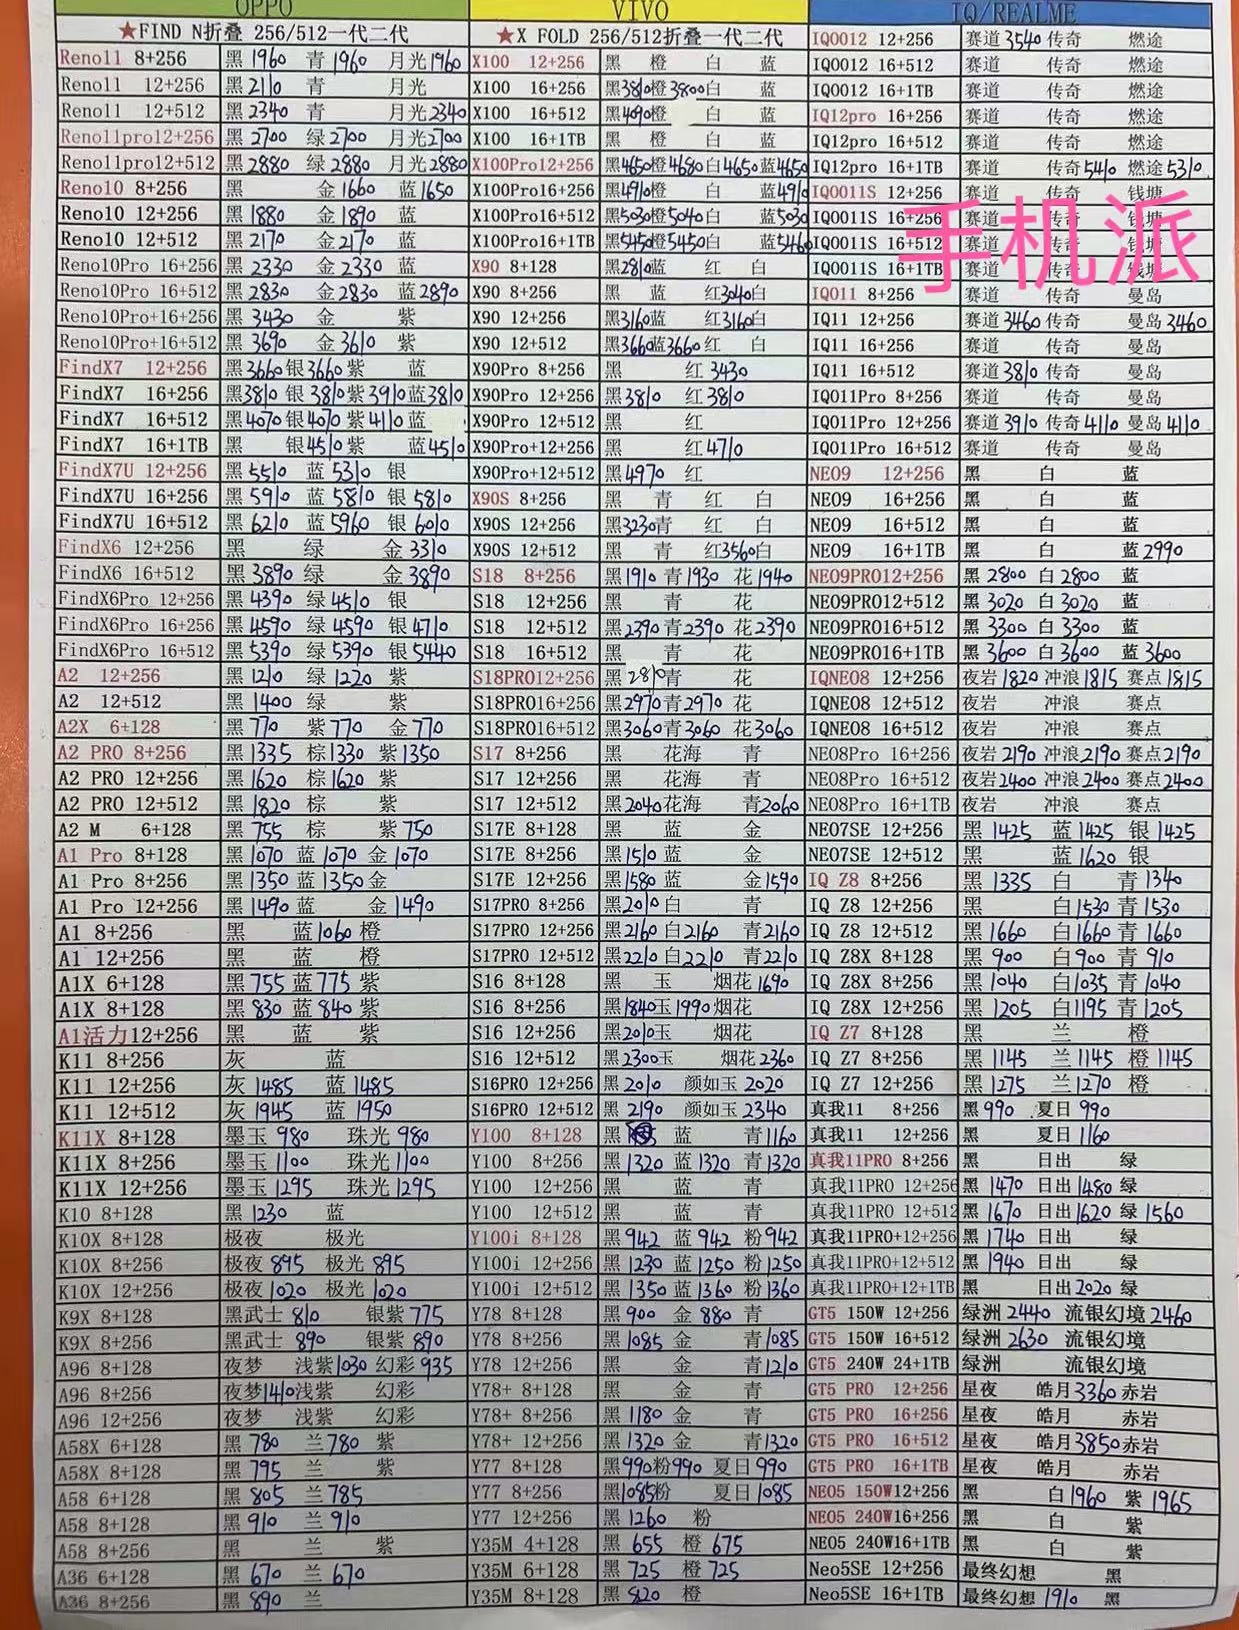 OPPO VIVO IQ/REALME
★FIND N折叠 256/512一代二代 ★X FOLD 256/512折叠一代二代 IQ0012 12+256 赛道 3540 传奇 燃途
Reno11 8+256 黑 1960 青 1960 月光 1960 X100 12+256 黑 橙 白 蓝 IQ0012 16+512 赛道 传奇 燃途
Reno11 12+256 黑 2110 青 月光 X100 16+256 黑 3810 橙 3800 白 蓝 IQ0012 16+1TB 赛道 传奇 燃途
Reno11 12+512 黑 2340 青 月光 2340 X100 16+512 黑 4090 橙 白 蓝 IQ12pro 16+256 赛道 传奇 燃途
Reno11pro12+256 黑 2700 绿 2700 月光 2700 X100 16+1TB 黑 橙 白 蓝 IQ12pro 16+512 赛道 传奇 燃途
Reno11pro12+512 黑 2880 绿 2880 月光 2880 X100Pro12+256 黑 4650 橙 4680 白 4650 蓝 4650 IQ12pro 16+1TB 赛道 传奇 5410 燃途 5310
Reno10 8+256 黑 金 1660 蓝 1650 X100Pro16+256 黑 4910 橙 白 蓝 4910 IQ0011S 12+256 赛道 传奇 钱塘
Reno10 12+256 黑 1880 金 1890 蓝 X100Pro16+512 黑 5030 橙 5040 白 蓝 5030 IQ0011S 16+256 赛道 传奇 钱塘
手机派
Reno10 12+512 黑 2170 金 2170 蓝 X100Pro16+1TB 黑 5450 橙 5450 白 蓝 5460 IQ0011S 16+512 赛道 传奇 钱塘
Reno10Pro 16+256 黑 2330 金 2330 蓝 X90 8+128 黑 2810 蓝 红 白 IQ0011S 16+1TB 赛道 传奇 钱塘
Reno10Pro 16+512 黑 2830 金 2830 蓝 2890 X90 8+256 黑 蓝 红 3040 白 IQ011 8+256 赛道 传奇 曼岛
Reno10Pro+16+256 黑 3430 金 紫 X90 12+256 黑 3160 蓝 红 3160 白 IQ11 12+256 赛道 3460 传奇 曼岛 3460
Reno10Pro+16+512 黑 3690 金 3610 紫 X90 12+512 黑 3660 蓝 3660 红 白 IQ11 16+256 赛道 传奇 曼岛
FindX7 12+256 黑 3660 银 3660 紫 蓝 X90Pro 8+256 黑 红 3430 IQ11 16+512 赛道 3810 传奇 曼岛
FindX7 16+256 黑 3810 银 3810 紫 3910 蓝 3810 X90Pro 12+256 黑 3810 红 3810 IQ011Pro 8+256 赛道 传奇 曼岛
FindX7 16+512 黑 4070 银 4070 紫 4110 蓝 X90Pro 12+512 黑 红 IQ011Pro 12+256 赛道 3910 传奇 4110 曼岛 4110
FindX7 16+1TB 黑 银 4510 紫 蓝 4510 X90Pro+12+256 黑 红 4710 IQ011Pro 16+512 赛道 传奇 曼岛
FindX7U 12+256 黑 5510 蓝 5310 银 X90Pro+12+512 黑 4970 红 NEO9 12+256 黑 白 蓝
FindX7U 16+256 黑 5910 蓝 5810 银 5810 X90S 8+256 黑 青 红 白 NEO9 16+256 黑 白 蓝
FindX7U 16+512 黑 6210 蓝 5960 银 6010 X90S 12+256 黑 3230 青 红 白 NEO9 16+512 黑 白 蓝
FindX6 12+256 黑 绿 金 3310 X90S 12+512 黑 青 红 3560 白 NEO9 16+1TB 黑 白 蓝 2990
FindX6 16+512 黑 3890 绿 金 3890 S18 8+256 黑 1910 青 1930 花 1940 NEO9PRO12+256 黑 2800 白 2800 蓝
FindX6Pro 12+256 黑 4390 绿 4510 银 S18 12+256 黑 青 花 NEO9PRO12+512 黑 3020 白 3020 蓝
FindX6Pro 16+256 黑 4590 绿 4590 银 4710 S18 12+512 黑 2390 青 2390 花 2390 NEO9PRO16+512 黑 3300 白 3300 蓝
FindX6Pro 16+512 黑 5390 绿 5390 银 5440 S18 16+512 黑 青 花 NEO9PRO16+1TB 黑 3600 白 3600 蓝 3600
A2 12+256 黑 1210 绿 1220 紫 S18PRO12+256 黑 2810 青 花 IQNEO8 12+256 夜岩 1820 冲浪 1815 赛点 1815
A2 12+512 黑 1400 绿 紫 S18PRO16+256 黑 2970 青 2970 花 IQNEO8 12+512 夜岩 冲浪 赛点
A2X 6+128 黑 770 紫 770 金 770 S18PRO16+512 黑 3060 青 3060 花 3060 IQNEO8 16+512 夜岩 冲浪 赛点
A2 PRO 8+256 黑 1335 棕 1330 紫 1350 S17 8+256 黑 花海 青 NEO8Pro 16+256 夜岩 2190 冲浪 2190 赛点 2190
A2 PRO 12+256 黑 1620 棕 1620 紫 S17 12+256 黑 花海 青 NEO8Pro 16+512 夜岩 2400 冲浪 2400 赛点 2400
A2 PRO 12+512 黑 1820 棕 紫 S17 12+512 黑 2040 花海 青 2060 NEO8Pro 16+1TB 夜岩 冲浪 赛点
A2 M 6+128 黑 755 棕 紫 750 S17E 8+128 黑 蓝 金 NEO7SE 12+256 黑 1425 蓝 1425 银 1425
A1 Pro 8+128 黑 1070 蓝 1070 金 1070 S17E 8+256 黑 1510 蓝 金 NEO7SE 12+512 黑 蓝 1620 银
A1 Pro 8+256 黑 1350 蓝 1350 金 S17E 12+256 黑 1580 蓝 金 1590 IQ Z8 8+256 黑 1335 白 青 1340
A1 Pro 12+256 黑 1490 蓝 金 1490 S17PRO 8+256 黑 2010 白 青 IQ Z8 12+256 黑 白 1530 青 1530
A1 8+256 黑 蓝 1060 橙 S17PRO 12+256 黑 2160 白 2160 青 2160 IQ Z8 12+512 黑 1660 白 1660 青 1660
A1 12+256 黑 蓝 橙 S17PRO 12+512 黑 2210 白 2210 青 2210 IQ Z8X 8+128 黑 900 白 900 青 910
A1X 6+128 黑 755 蓝 775 紫 S16 8+128 黑 玉 烟花 1690 IQ Z8X 8+256 黑 1040 白 1035 青 1040
A1X 8+128 黑 830 蓝 840 紫 S16 8+256 黑 1840 玉 1990 烟花 IQ Z8X 12+256 黑 1205 白 1195 青 1205
A1活力12+256 黑 蓝 紫 S16 12+256 黑 2010 玉 烟花 IQ Z7 8+128 黑 兰 橙
K11 8+256 灰 蓝 S16 12+512 黑 2300 玉 烟花 2360 IQ Z7 8+256 黑 1145 兰 1145 橙 1145
K11 12+256 灰 1485 蓝 1485 S16PRO 12+256 黑 2010 颜如玉 2020 IQ Z7 12+256 黑 1275 兰 1270 橙
K11 12+512 灰 1945 蓝 1950 S16PRO 12+512 黑 2190 颜如玉 2340 真我11 8+256 黑 990 夏日 990
K11X 8+128 墨玉 980 珠光 980 Y100 8+128 黑 蓝 青 1160 真我11 12+256 黑 夏日 1160
K11X 8+256 墨玉 1100 珠光 1100 Y100 8+256 黑 1320 蓝 1320 青 1320 真我11PRO 8+256 黑 日出 绿
K11X 12+256 墨玉 1295 珠光 1295 Y100 12+256 黑 蓝 青 真我11PRO 12+256 黑 1470 日出 1480 绿
K10 8+128 黑 1230 蓝 Y100 12+512 黑 蓝 青 真我11PRO 12+512 黑 1670 日出 1620 绿 1560
K10X 8+128 极夜 极光 Y100i 8+128 黑 942 蓝 942 粉 942 真我11PRO+12+256 黑 1740 日出 绿
K10X 8+256 极夜 895 极光 895 Y100i 12+256 黑 1230 蓝 1250 粉 1250 真我11PRO+12+512 黑 1940 日出 绿
K10X 12+256 极夜 1020 极光 1020 Y100i 12+512 黑 1350 蓝 1360 粉 1360 真我11PRO+12+1TB 黑 日出 2020 绿
K9X 8+128 黑武士 810 银紫 775 Y78 8+128 黑 900 金 880 青 GT5 150W 12+256 绿洲 2440 流银幻境 2460
K9X 8+256 黑武士 890 银紫 890 Y78 8+256 黑 1085 金 青 1085 GT5 150W 16+512 绿洲 2630 流银幻境
A96 8+128 夜梦 浅紫 1030 幻彩 935 Y78 12+256 黑 金 青 1210 GT5 240W 24+1TB 绿洲 流银幻境
A96 8+256 夜梦 1410 浅紫 幻彩 Y78+ 8+128 黑 金 青 GT5 PRO 12+256 星夜 皓月 3360 赤岩
A96 12+256 夜梦 浅紫 幻彩 Y78+ 8+256 黑 1180 金 青 GT5 PRO 16+256 星夜 皓月 赤岩
A58X 6+128 黑 780 兰 780 紫 Y78+ 12+256 黑 1320 金 青 1320 GT5 PRO 16+512 星夜 皓月 3850 赤岩
A58X 8+128 黑 795 兰 紫 Y77 8+128 黑 990 粉 990 夏日 990 GT5 PRO 16+1TB 星夜 皓月 赤岩
A58 6+128 黑 805 兰 785 Y77 8+256 黑 1085 粉 夏日 1085 NEO5 150W12+256 黑 白 1960 紫 1965
A58 8+128 黑 910 兰 910 Y77 12+256 黑 1260 粉 NEO5 240W16+256 黑 白 紫
A58 8+256 黑 兰 紫 Y35M 4+128 黑 655 橙 675 NEO5 240W16+1TB 黑 白 紫
A36 6+128 黑 670 兰 670 Y35M 6+128 黑 725 橙 725 Neo5SE 12+256 最终幻想 黑
A36 8+256 黑 890 兰 Y35M 8+128 黑 820 橙 Neo5SE 16+1TB 最终幻想 1910 黑